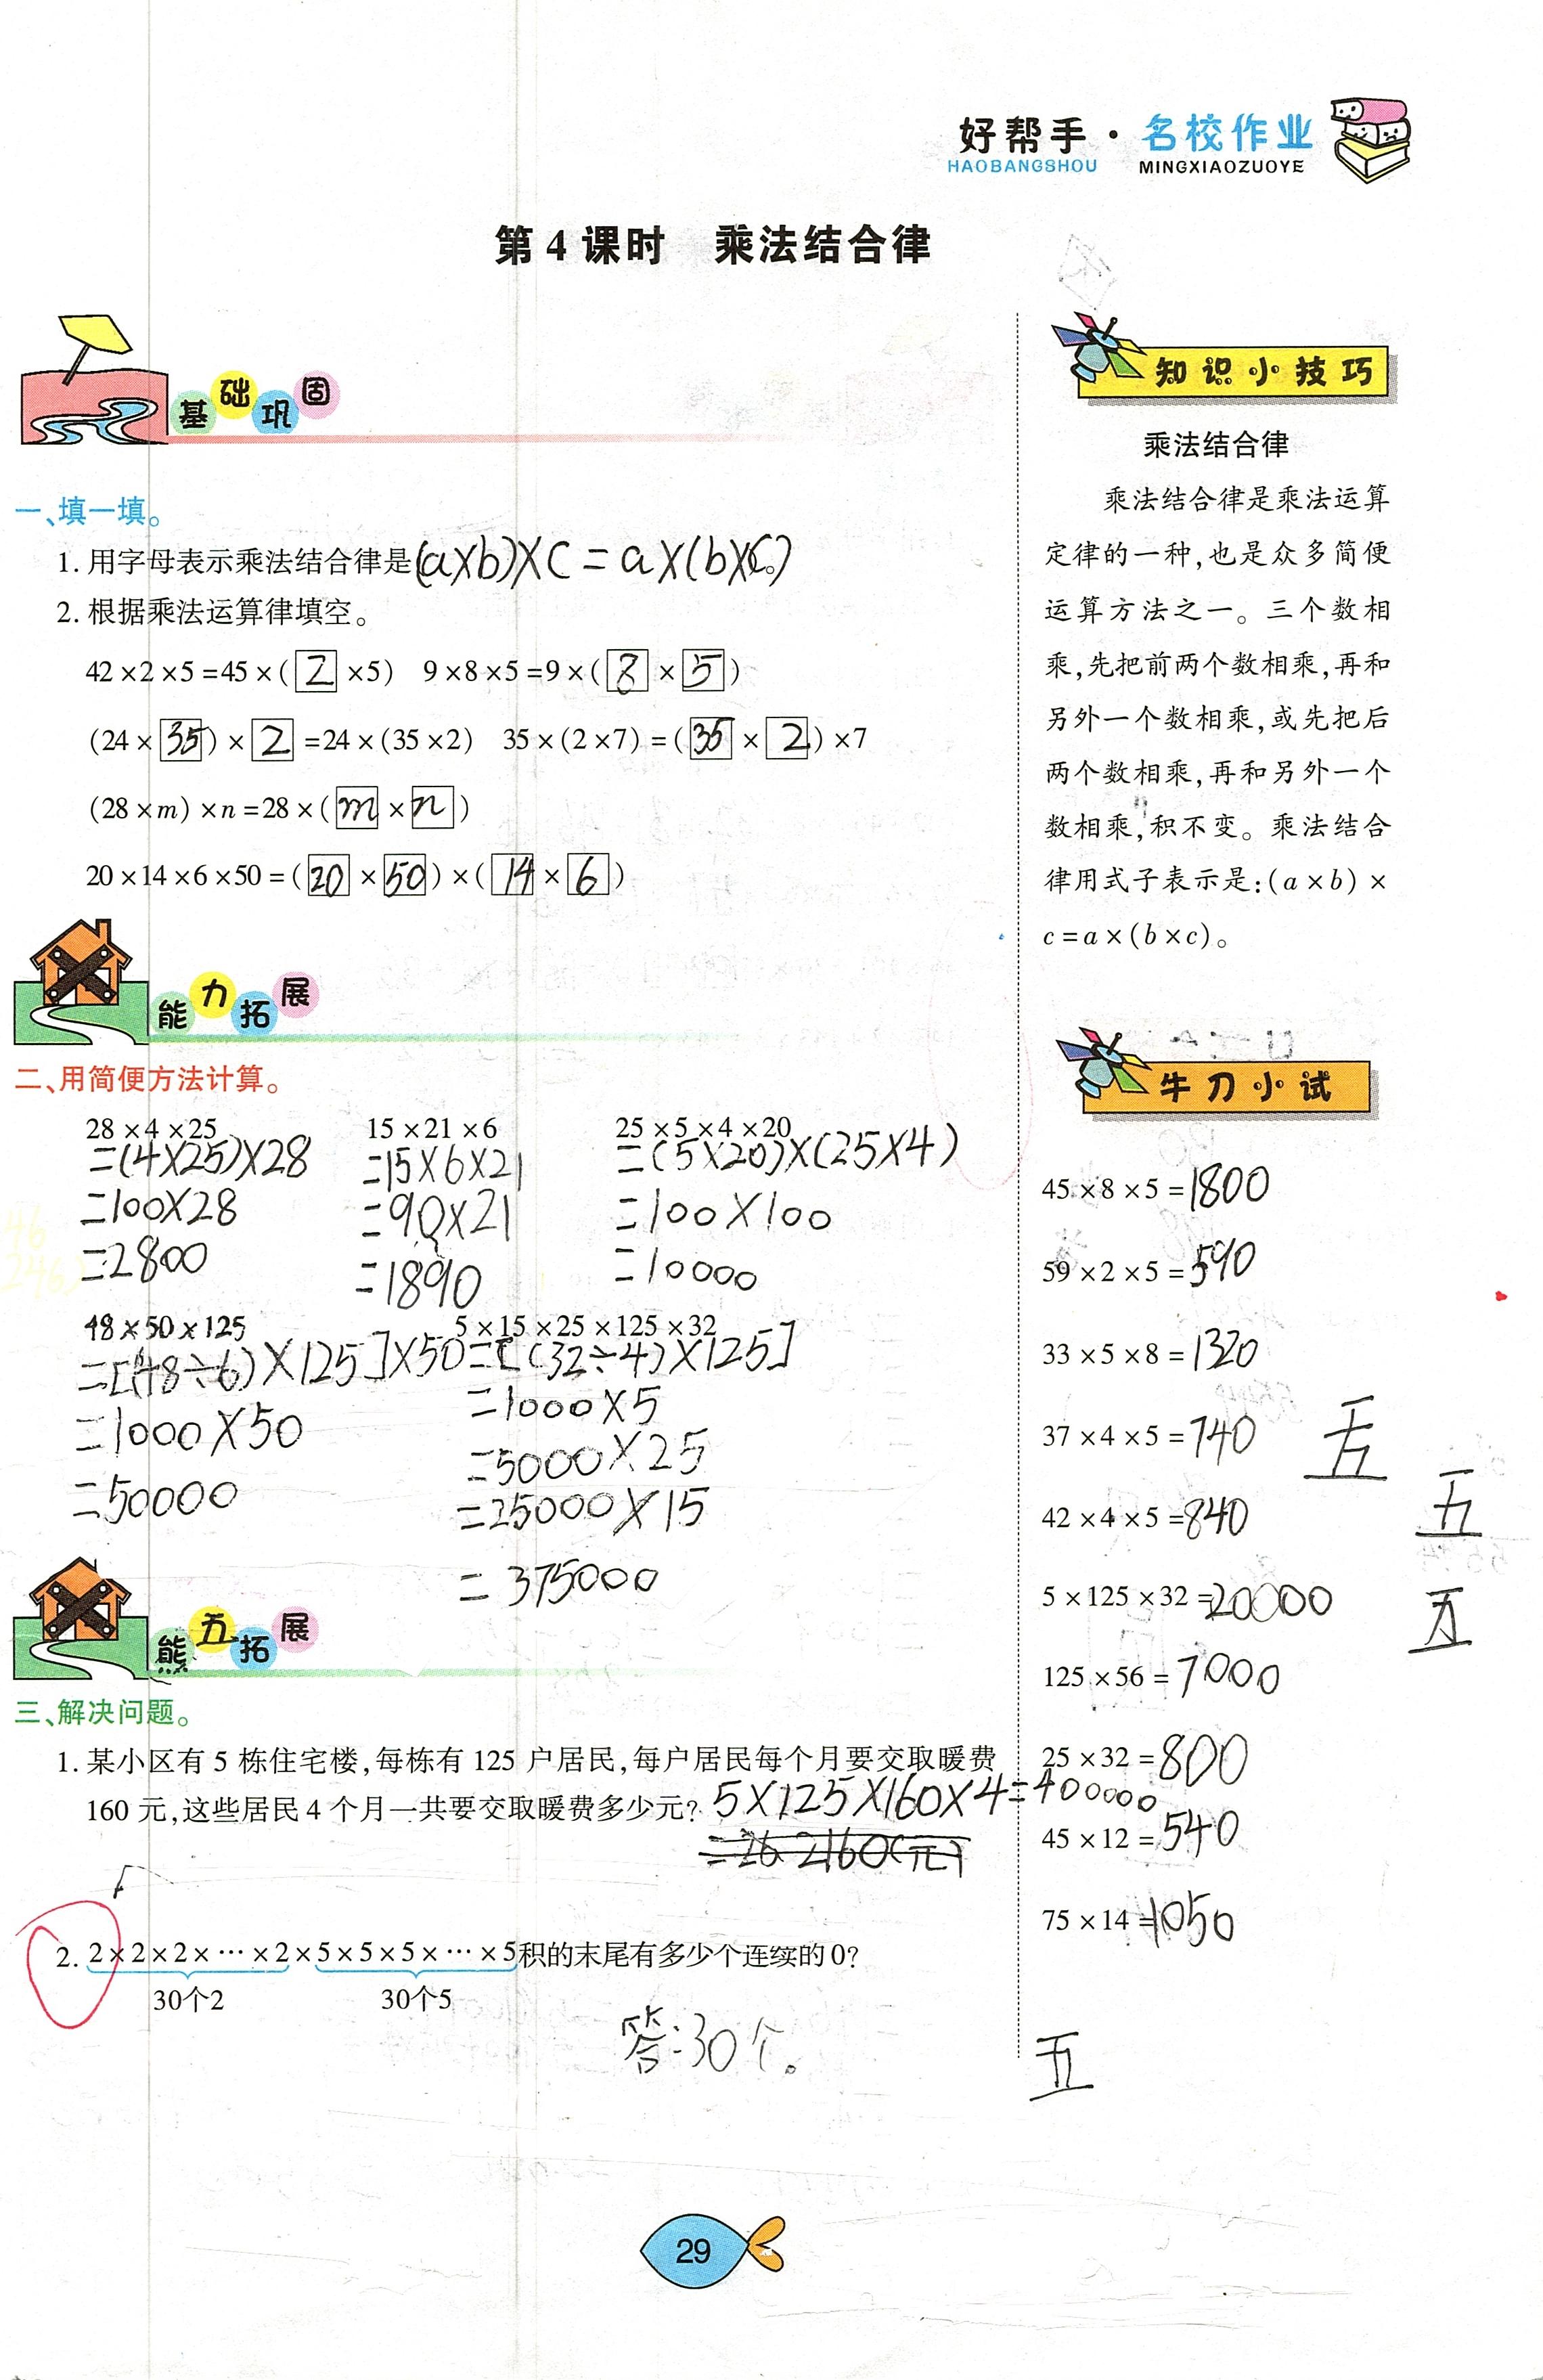 好帮手·名校作业
HAOBANGSHOU MINGXIAOZUOYE
第4课时 乘法结合律
基础巩固
一、填一填。
1. 用字母表示乘法结合律是(a×b)×c=a×(b×c)。
2. 根据乘法运算律填空。
42×2×5=45×(2×5) 9×8×5=9×(8×5)
(24×35)×2=24×(35×2) 35×(2×7)=(35×2)×7
(28×m)×n=28×(m×n)
20×14×6×50=(20×50)×(14×6)
能力拓展
二、用简便方法计算。
28×4×25 15×21×6 25×5×4×20
=(4×25)×28 =15×6×21 =(5×20)×(25×4)
=100×28 =90×21 =100×100
=2800 =1890 =10000
48×50×125 5×15×25×125×32
=[(48÷6)×125]×50 =[(32÷4)×125]
=1000×50 =1000×5
=50000 =5000×25
=25000×15
=375000
熊五拓展
三、解决问题。
1. 某小区有5栋住宅楼,每栋有125户居民,每户居民每个月要交取暖费
160元,这些居民4个月一共要交取暖费多少元? 5×125×160×4=400000
=262160(元)
2. 2×2×2×…×2×5×5×5×…×5积的末尾有多少个连续的0?
30个2 30个5
答:30个。
知识小技巧
乘法结合律
乘法结合律是乘法运算
定律的一种,也是众多简便
运算方法之一。三个数相
乘,先把前两个数相乘,再和
另外一个数相乘,或先把后
两个数相乘,再和另外一个
数相乘,积不变。乘法结合
律用式子表示是:(a×b)×
c=a×(b×c)。
牛刀小试
45×8×5=1800
59×2×5=590
33×5×8=1320
37×4×5=740
五
42×4×5=840
五
5×125×32=20000
五
125×56=7000
25×32=800
45×12=540
75×14=1050
五
29